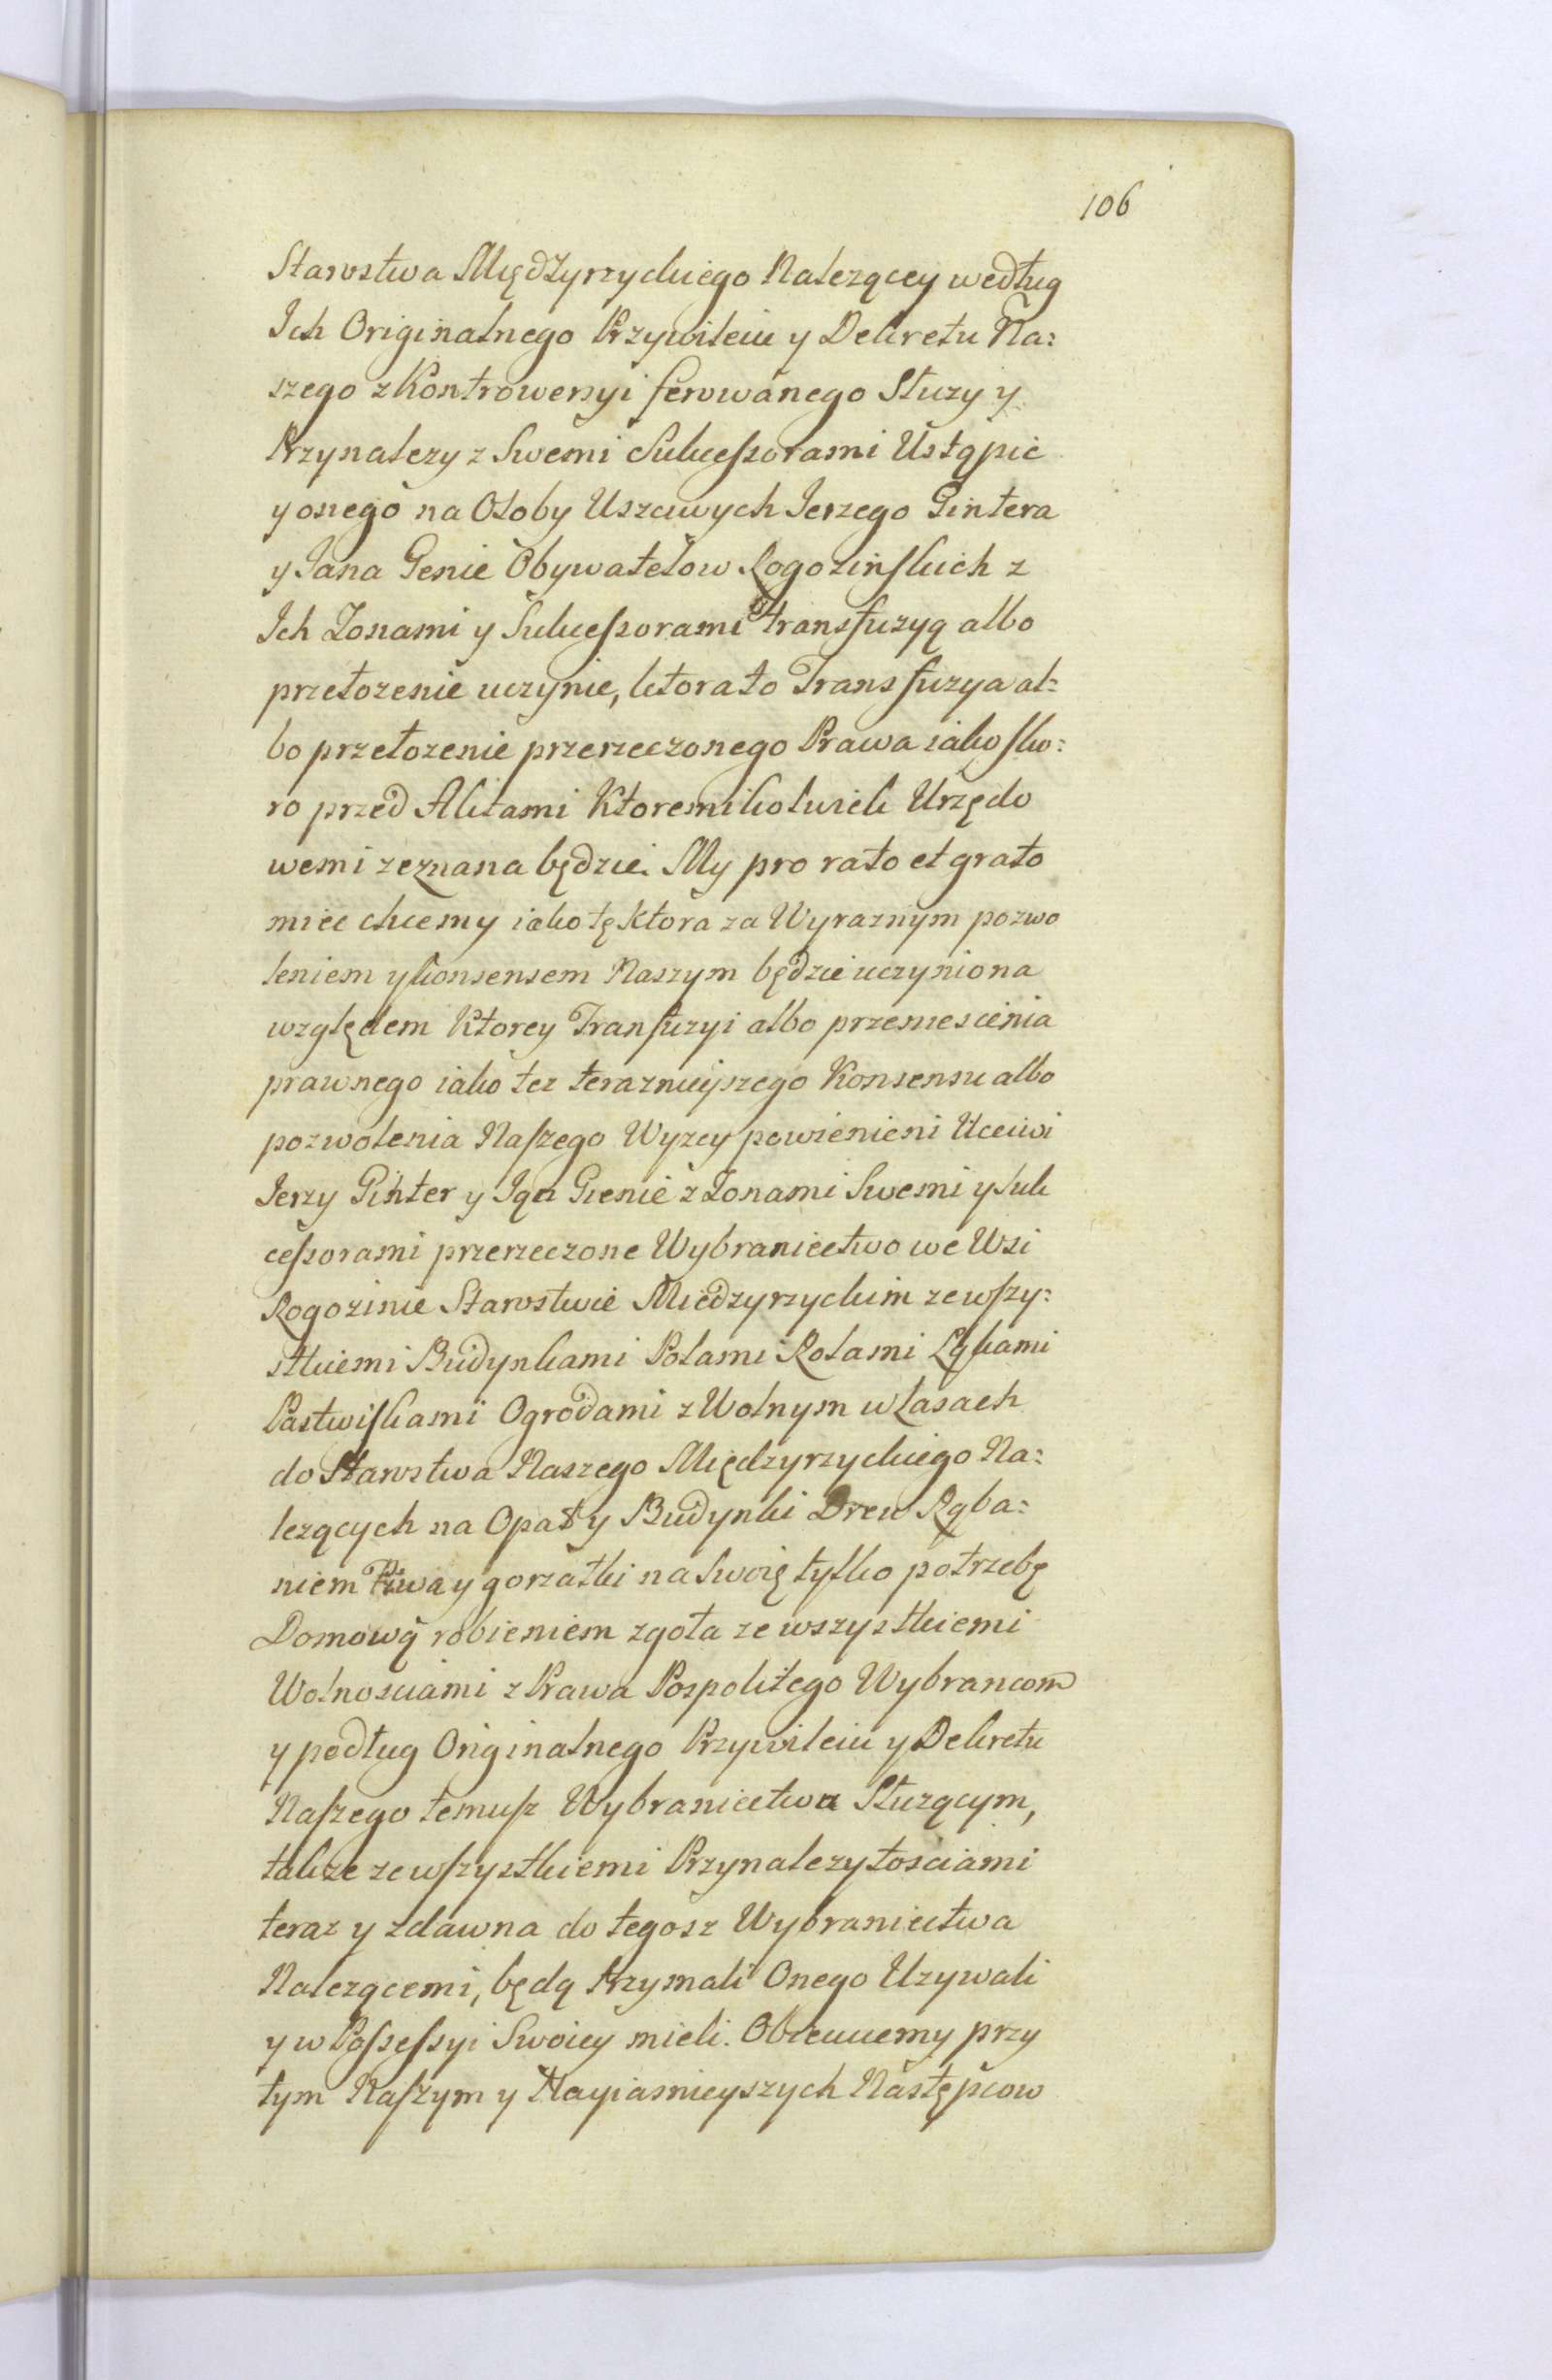 106
Starostwa Międzyrzyckiego Nalezącey według
Ich Originalnego Przywileiu y Dekretu Na:
szego z Kontrowersyi ferowanego Słuzy y
Przynalezy z Swemi Sukceſsorami Ustąpic
y onego na Osoby Uszciwych Jerzego Gintera
y Jana Genie Obywatelow Rogozinſkich z
Ich Zonami y Sukceſsorami transfuzyą albo
przełozenie uczynic, ktora to Transfuzya al:
bo przełozenie przerzeczonego Prawa iako ſko:
ro przed Aktami Ktoremikolwiek Urzędo
wemi zeznana będzie. My pro rato et grato
miec chcemy iako tę ktora za Wyraznym pozwo
leniem y konsensem Naszym będzie uczyniona
względem Ktorey Tranfuzyi albo przeniescienia
prawnego iako tez teraznieyszego Konsensu albo
pozwolenia Naſzego Wyzey powienieni Ucciwi
Jerzy Ginter y Jan Gienie z Zonami Swemi y Suk
ceſsorami przerzeczone Wybraniectwo we Wsi
Rogozinie Starostwie Miedzyrzyckim ze wſzy:
stkiemi Budynkami Polami Rolami Łąkami
Pastwiſkami Ogrodami z Wolnym w Lasach
do Starostwa Naszego Międzyrzyckiego Na:
lezących na Opał y Budynki Drew Rąba:
niem Piwa y gorzałki na Swoię tylko potrzebę
Domową robieniem zgoła ze wszystkiemi
Wolnosciami z Prawa Pospolitego Wybrancom
y podług Originalnego Przywileiu y Dekretu
Naſzego temuſz Wybranictwu Słuzącym,
takze ze wſzystkiemi Przynalezytościami
teraz y zdawna do tegosz Wybranictwa
Nalezącemi, będą trzymali Onego Uzywali
y w Poſseſsyi Swoiey mieli. Obiecuiemy przy
tym Naſzym y Nayiasnieyszych Następcow